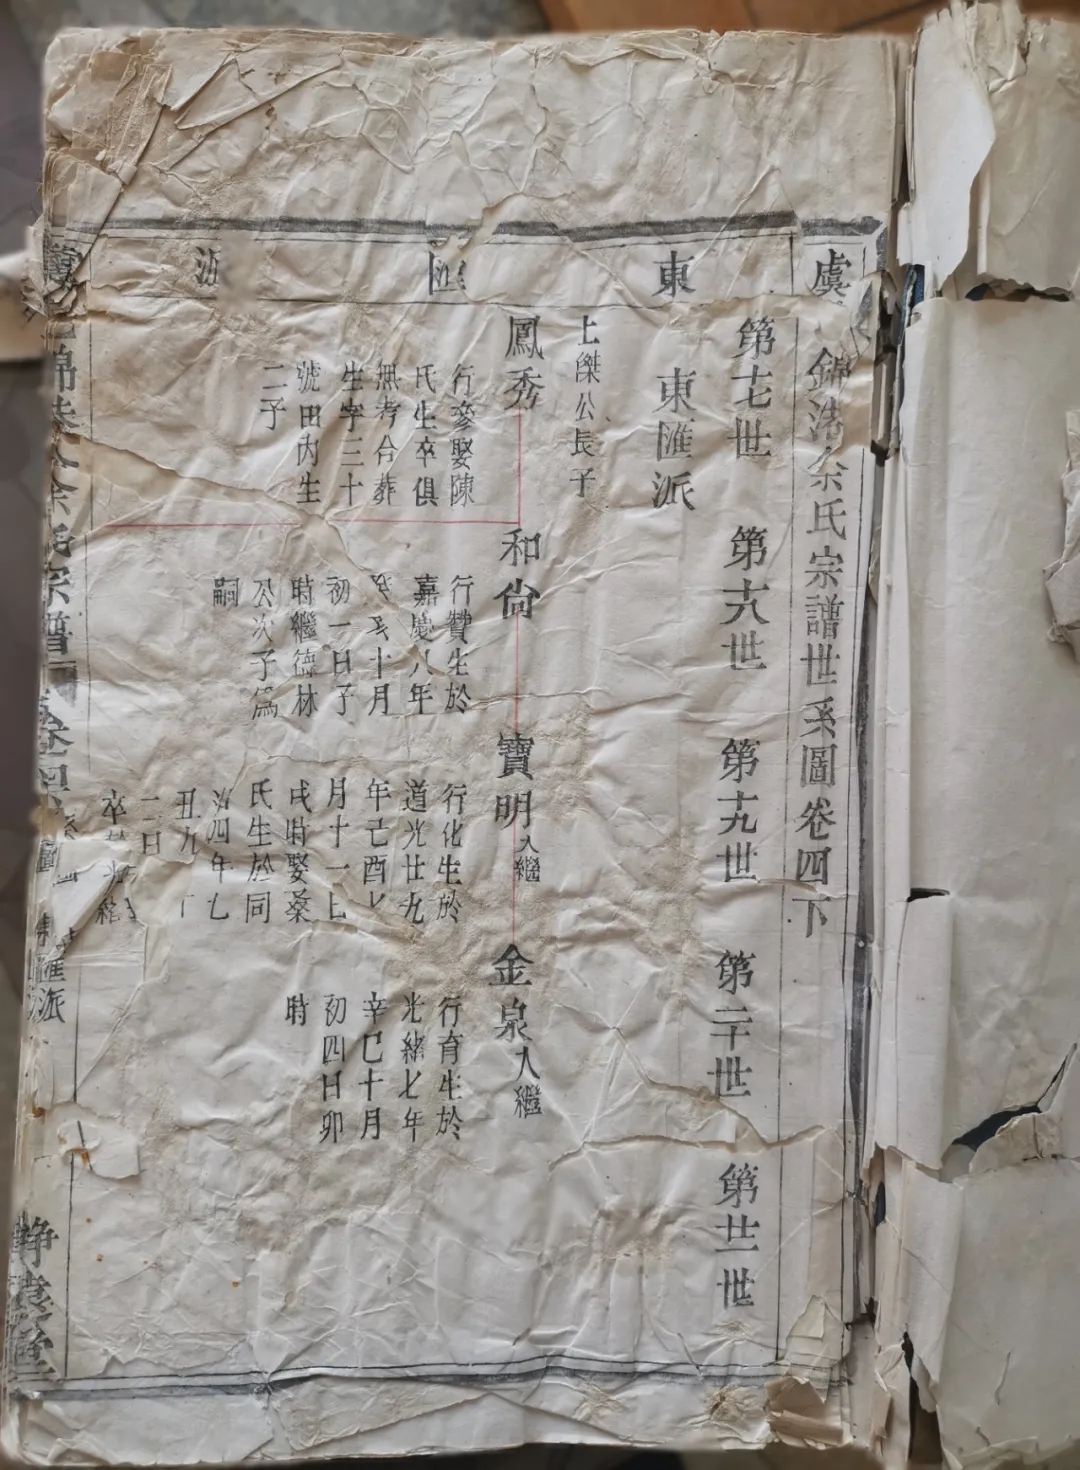 東匯派
錦浩余氏宗譜世系圖卷四下
第十七世
第十八世
第十九世
第二十世
第廿一世
東匯派
上傑公長子
鳳秀
行參娶陳
氏生卒俱
無考合葬
生字三十
號田內生
二子
和尚
行贊生於
嘉慶八年
癸亥十月
初一日子
時繼德林
公次子為
嗣
寶明入繼
行化生於
道光廿九
年己酉七
月十一日
戌時娶桑
氏生於同
治四年乙
丑九
二日
卒於光緒
金泉入繼
行育生於
光緒七年
辛巳十月
初四日卯
時
余氏宗譜
卷四
東匯派